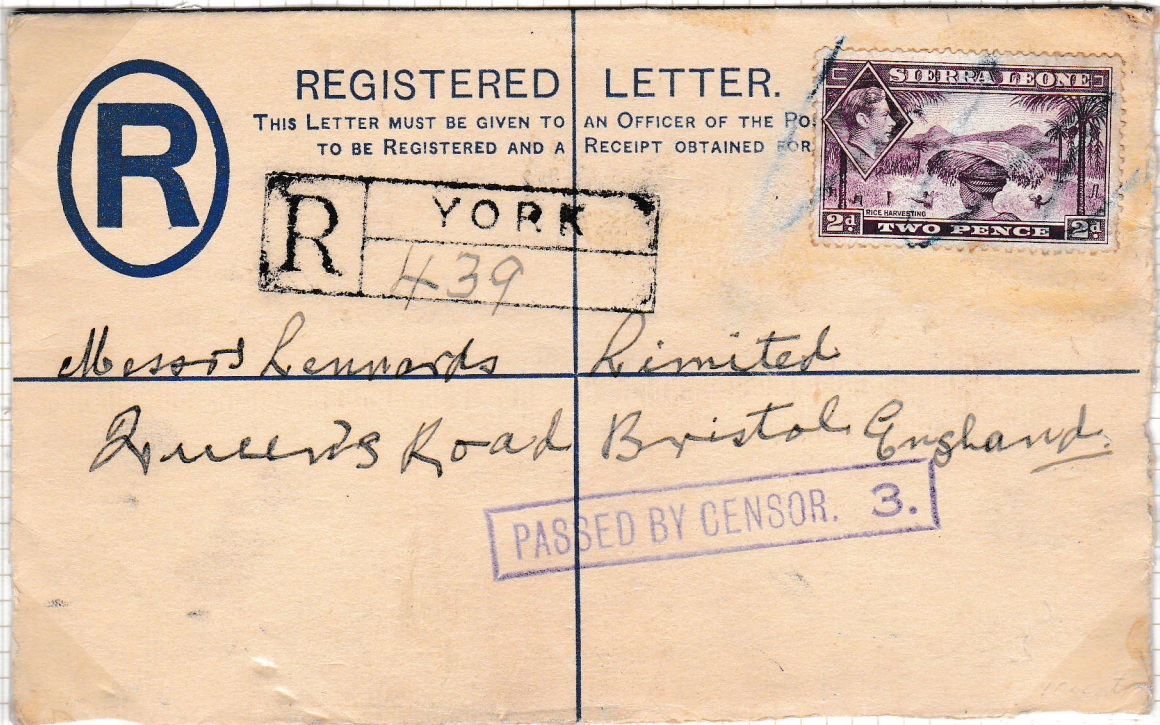 R
REGISTERED LETTER.
THIS LETTER MUST BE GIVEN TO AN OFFICER OF THE PO
TO BE REGISTERED AND A RECEIPT OBTAINED FOR
SIERRA LEONE
RICE HARVESTING
2d. TWO PENCE 2d
R YORK
439
Messrs Lennards Limited
Queen's Road Bristol England.
PASSED BY CENSOR. 3.